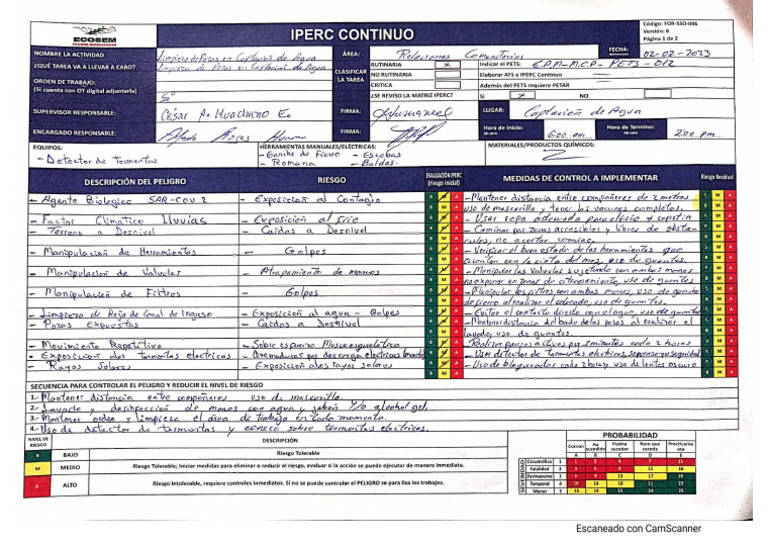 ECOSEM
IPERC CONTINUO
Código: FOR-SSO-006
Versión: 6
Página 1 de 2
NOMBRE LA ACTIVIDAD
Limpieza de Pozas en Captación de Agua
ÁREA:
Relaciones Comunitarias
FECHA:
02-02-2023
¿QUÉ TAREA VA A LLEVAR A CABO?
Limpieza de Pozas en Captación de Agua
CLASIFICAR LA TAREA
RUTINARIA
x
Indicar el PETS:
NO RUTINARIA
Elaborar ATS e IPERC Continuo
ORDEN DE TRABAJO:
(Si cuenta con OT digital adjuntarla)
CRITICA
Además del PETS requiere PETAR
¿SE REVISO LA MATRIZ IPERC?
SI
x
NO
SUPERVISOR RESPONSABLE:
César A.
FIRMA:
LUGAR:
Captación de Agua
ENCARGADO RESPONSABLE:
FIRMA:
Hora de Inicio:
6:00 am
Hora de Termino:
2:00 pm
EQUIPOS:
- Detector de Tormentas
HERRAMIENTAS MANUALES/ELÉCTRICAS:
- Gancho de Fierro - Escobas
- Romana - Baldes
MATERIALES/PRODUCTOS QUÍMICOS:
DESCRIPCIÓN DEL PELIGRO
RIESGO
EVALUACIÓN IPERC (riesgo inicial)
MEDIDAS DE CONTROL A IMPLEMENTAR
Riesgo Residual
- Agente Biologico SAR-COV 2 - Exposición al Contagio - Mantener distancia entre compañeros de 2 metros
uso de mascarilla y tener las vacunas completas.
- Factor Climatico Lluvias - Exposición al frio - Usar ropa adecuada para el frio
- Terreno a Desnivel - Caidas a Desnivel - Caminar por zonas accesibles y libres de obsta-
culos, no acortar camino.
- Manipulación de Herramientas - Golpes - Verificar el buen estado de las herramientas que
cuenten con la cinta del mes, uso de guantes.
- Manipulación de Valvulas - Atrapamiento de manos - Manipular las Valvulas sujetando con ambas manos
no exponer en zonas de atrapamiento, uso de guantes
- Manipulación de Filtros - Golpes - Manipular los filtros con ambas manos, uso de gancho
de fierro al realizar el uso de guantes.
- Limpieza de Reja de Canal de Ingreso - Exposición al agua - Golpes - Evitar el contacto directo con el agua, uso de guantes
- Pozas Expuestas - Caidas a Desnivel - Mantener distancia del borde de las pozas al realizar el
lavado, uso de guantes.
- Movimiento Repetitivo - Sobre esfuerzo Musculo esquelético - Realizar pausas activas por 5 minutos cada 2 horas
- Exposicion alas tormentas electricas - - Usar detector de Tormentas electricas,
- Rayos Solares - Exposición alos rayos solares - Uso de bloqueador cada 2 horas, uso de lentes oscuro
SECUENCIA PARA CONTROLAR EL PELIGRO Y REDUCIR EL NIVEL DE RIESGO
1.- Mantener distancia entre compañeros uso de mascarilla.
2.- Lavarse y desinfección de manos con agua y jabón y/o alcohol gel.
3.- Mantener orden y limpieza el área de trabajo en todo momento.
4.- Uso de detector de tormentas y conoce sobre tormentas electricas.
NIVEL DE RIESGO
DESCRIPCIÓN
B BAJO Riesgo Tolerable
M MEDIO Riesgo Tolerable; Iniciar medidas para eliminar o reducir el riesgo, evaluar si la acción se puede ejecutar de manera inmediata.
A ALTO Riesgo Intolerable, requiere controles inmediatos. Si no se puede controlar el PELIGRO se para lizo los trabajos.
PROBABILIDAD
Común
Ha sucedido
Podría suceder
Raro que suceda
A B C D E
SEVERIDAD
Catastrófico 1
Fatalidad 2
Permanente 3
Temporal 4
Menor 5
Escaneado con CamScanner